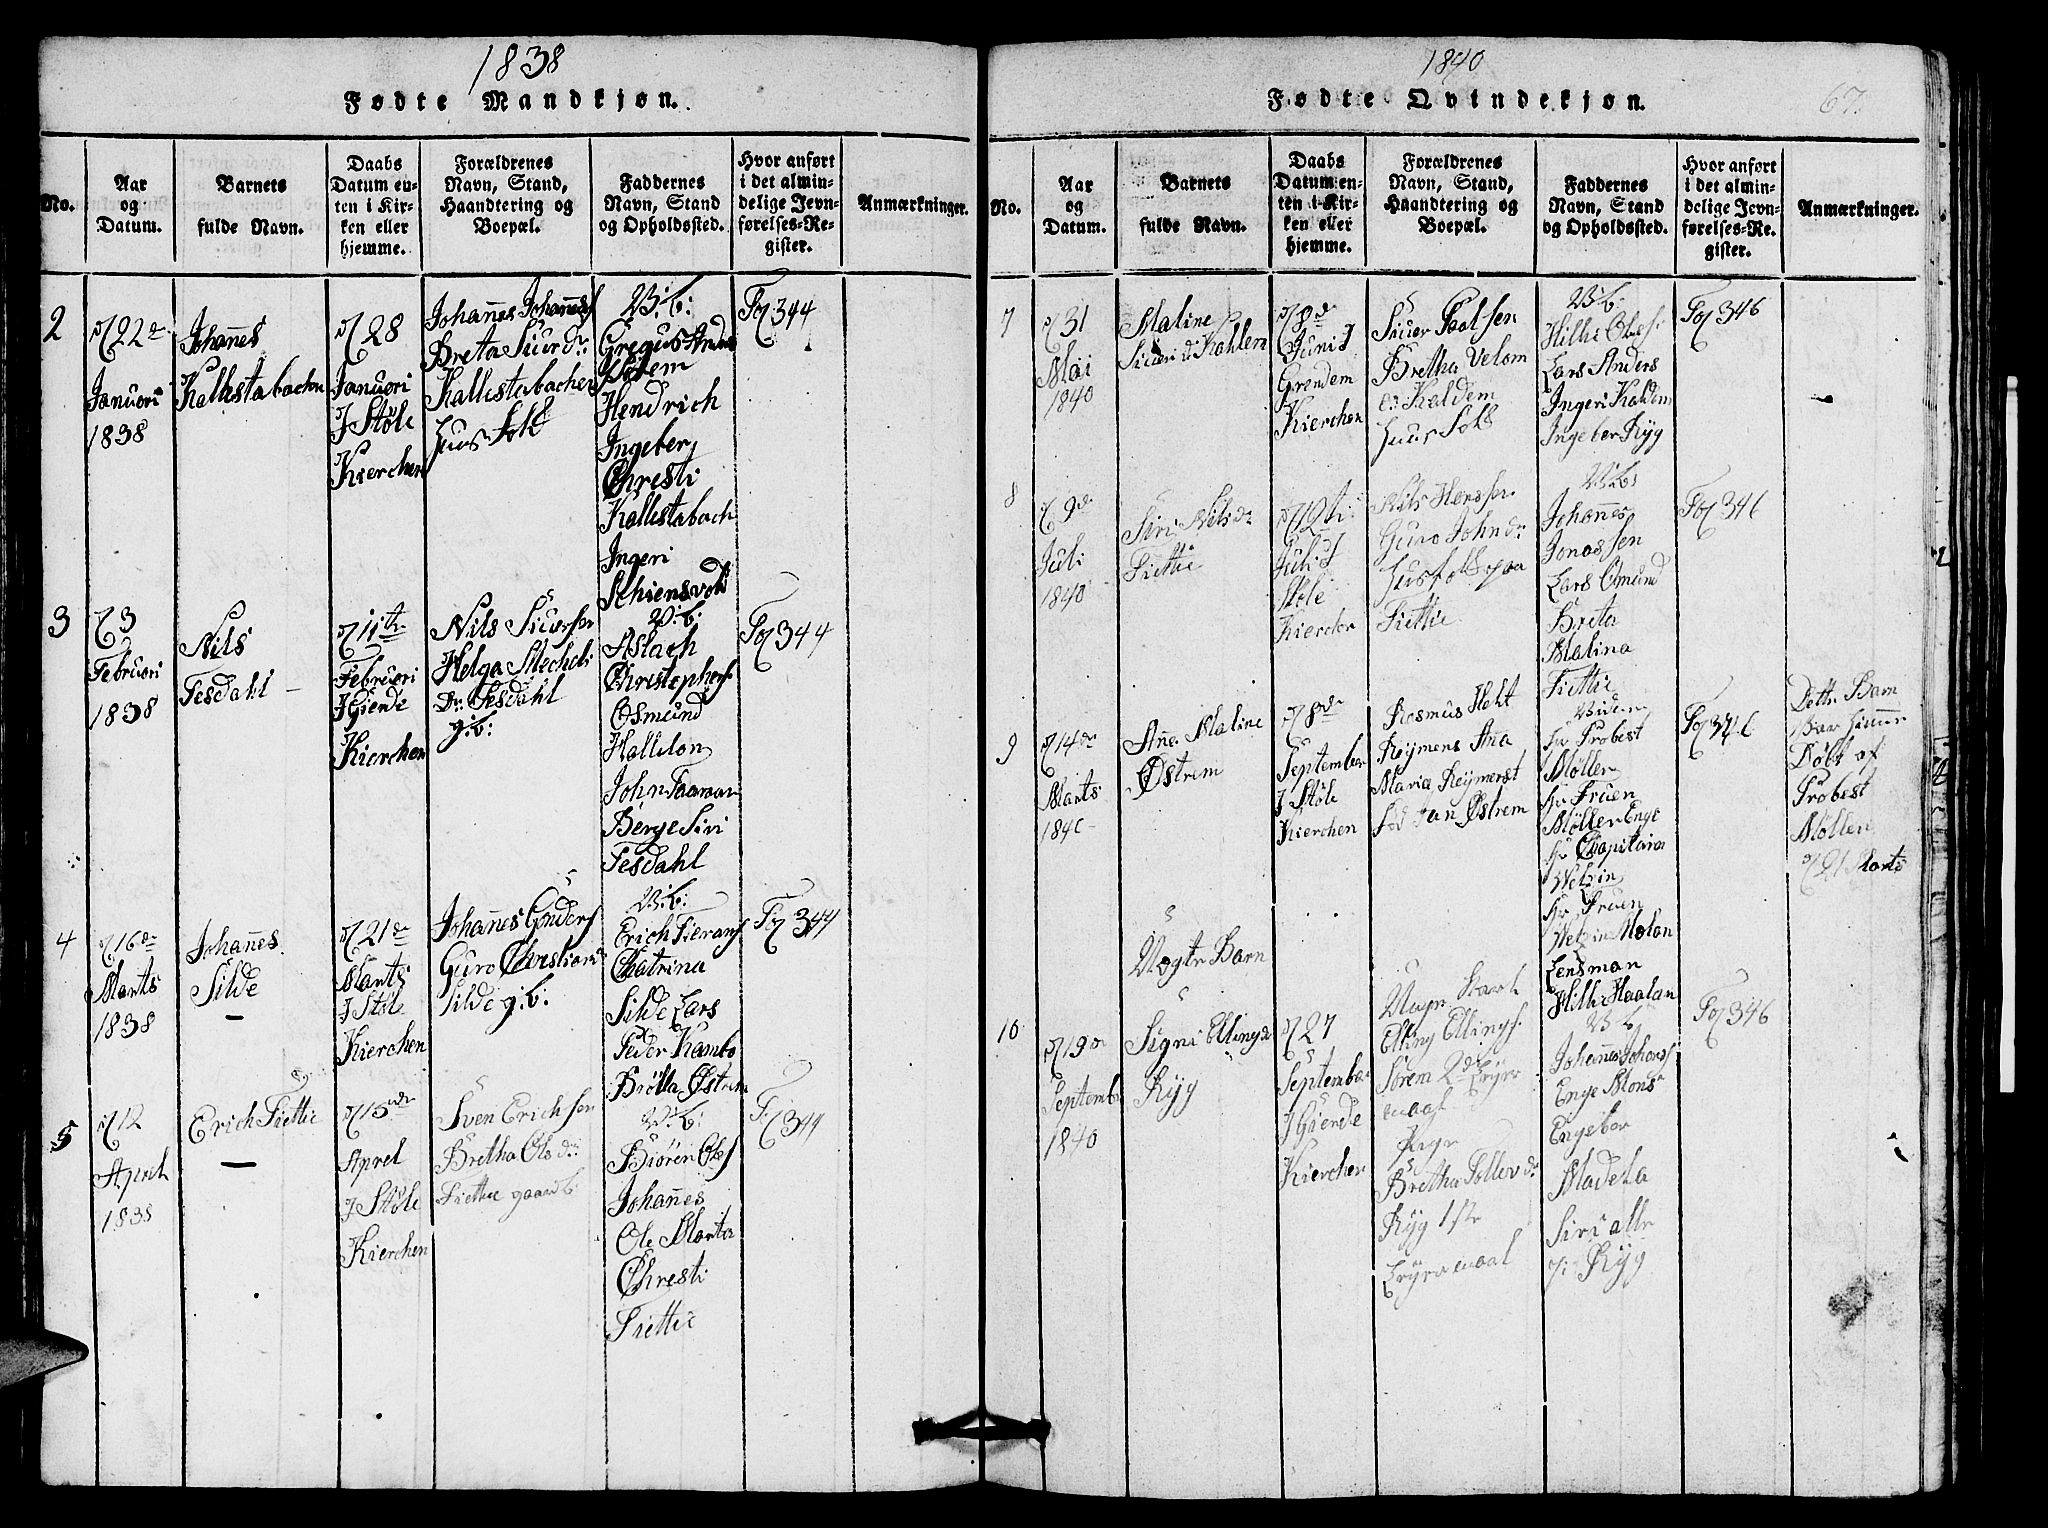 1838
Fødte Mandkjøn.
No.
Aar
og
Datum.
Barnets
fulde Navn.
Daabs
Datum en-
ten i Kir-
ken eller
hjemme.
Forældrenes
Navn, Stand,
Haandtering og
Boepæl.
Faddernes
Navn, Stand
og Opholdssted.
Hvor anført
i det almin-
delige Jevn-
førelses-Re-
gister.
Anmærkninger.
2
22de
Januari
1838
Johannes
Kallestabachen
28
Januari
I Støle
Kierchen
Johannes Johannes
Breta Siurdr
Kallestabachen
Huus folk
V: b:
Gregus Andes
Hendrich
Ingeber
Christi
Kallestabach
Ingeri
Schiensvold
Fol 344
3
3
Februari
1838
Nils
Tesdahl
11te
Februari
I Gierde
Kierchen
Nils Siversen
Helga Mechel
Dr: Tesdahl
g: b:
V: b:
Aslach
Christephers
Osmund
Halleland
John
Berge Siri
Tesdahl
Fol 344
4
16de
Marts
1838
Johannes
Silde
21de
Marts
I Støle
Kierchen
Johannes Gunders
Guro Christians
Silde g: b:
V: b:
Erich
Chatrina
Silde Lars
Peder Kambo
Østrem
Fol 344
5
12
Aprel
1838
Erich Fiettie
15de
Aprel
I Støle
Kierchen
Sven Erichsen
Bretha Olsdr:
Fiettie gaardb:
V: b:
Biören Oles
Johannes
Ole Marta
Christi
Fiettie
Fol 344
1840
Fødte Qvindekjøn.
67.
No.
Aar
og
Datum.
Barnets
fulde Navn.
Daabs
Datum en-
ten i Kir-
ken eller
hjemme.
Forældrenes
Navn, Stand,
Haandtering og
Boepæl.
Faddernes
Navn, Stand
og Opholdssted.
Hvor anført
i det almin-
delige Jevn-
førelses-Re-
gister.
Anmærkninger.
7
31
Mai
1840
Maline
8de
Juni I
Grendem
Kierchen
Siver Paalsen
Bretha Velom
Kaldem
Huus folk
V: b:
Hilli Oles
Lars Anders
Ingeri Kaldem
Ingeber Ryg
Fol 346
8
9de
Juli
1840
Siri Nilsdr
Fiettie
19te
Juli I
Støle
Kiercher
Nils Hansen
Guro Johndr
Husfolk paa
Fiettie
V: b:
Johannes
Jonassen
Lars Omund
Breta
Malina
Fiettie
Fol 346
9
14de
Marts
1840
Ane Maline
Østrem
8de
September
I Støle
Kierchen
Rasmus Holt
Reymers Ana
Maria Reymerst
Østrem
Videre
hr Probest
Møller
hr Fruen
Møller Enge
hr Chapitain
Wetzin
hr Fruen
Wetzin
Lensman
Hilli Haalan
Fol 346
Dette Barn
Bar himer
Døbt af
Probest
Møller
21 Marts
Uegte Barn
10
19de
September
1840
Signi Ellingdr
Ryg
27
September
I Gierde
Kiercher
Elling Ellings
Sørem 2de
maal
Piger
Bretha Tollevdr
Ryg 1ste
V: b:
Johannes Johans
Enge Mons
Engeber
Madela
Siri alle
Ryg
Fol 346